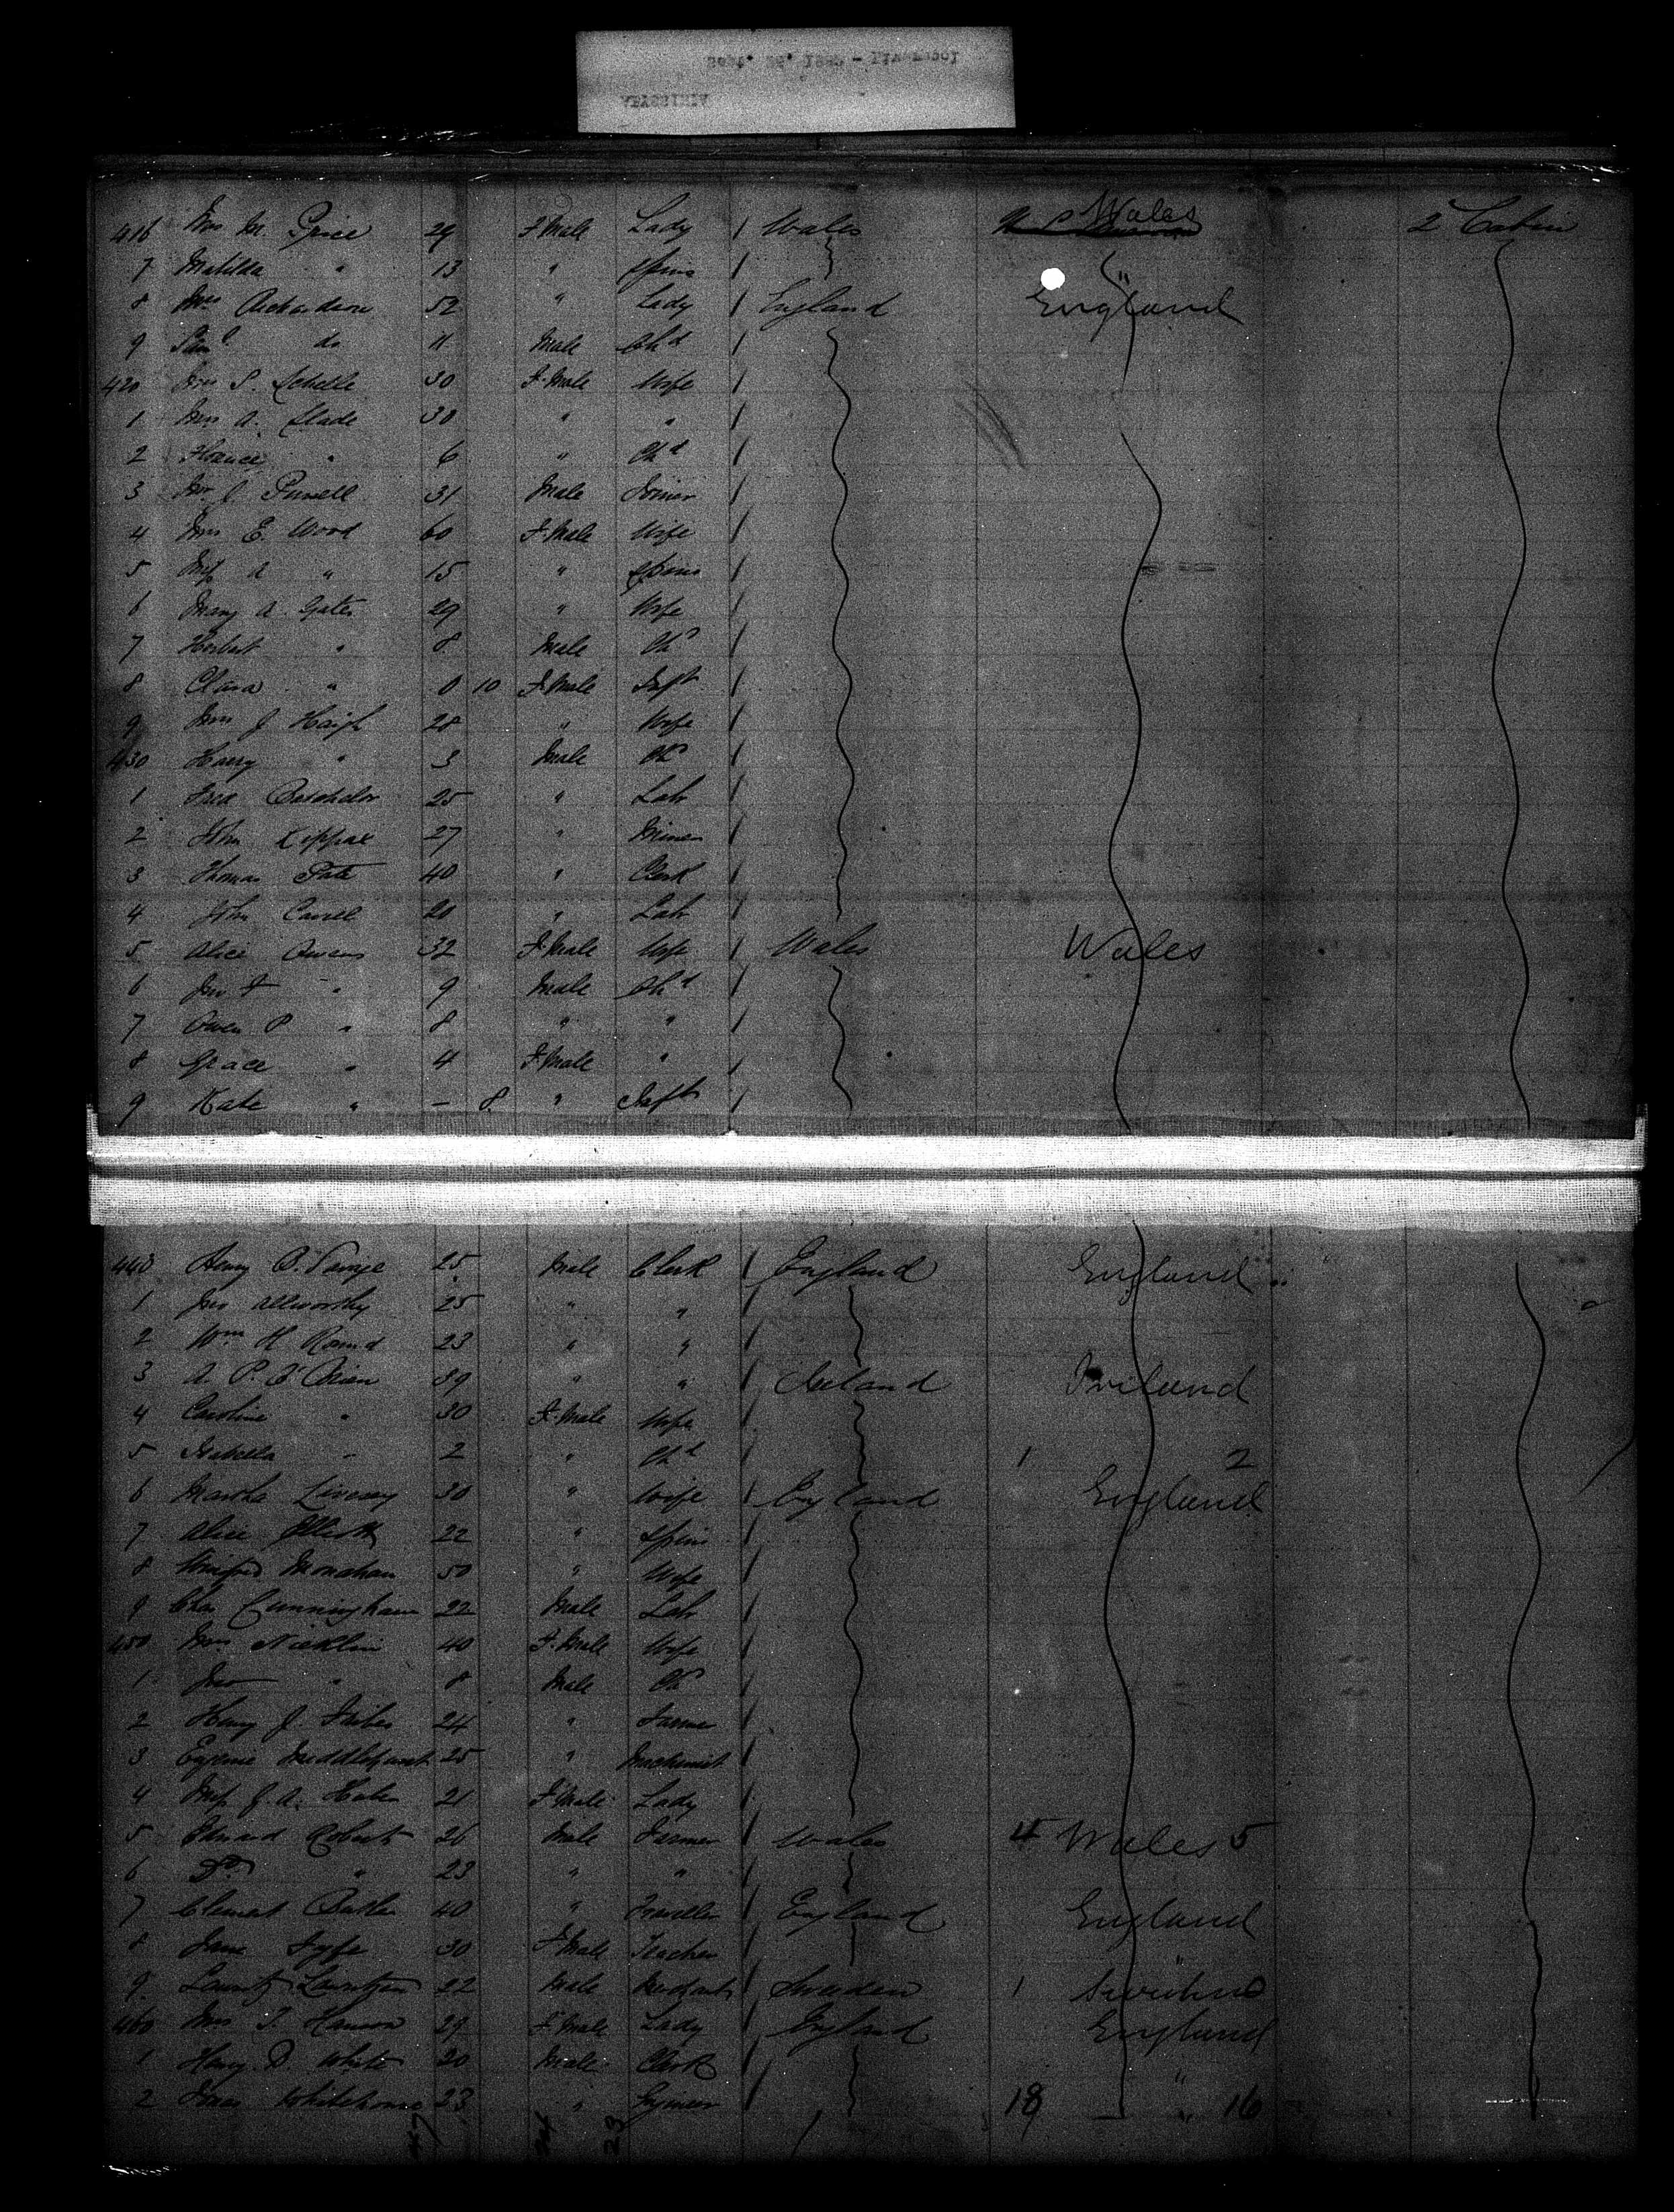 416 Mrs M. Price 29 F Male Lady / Wales Wales 2 Cabin
7 Matilda " 13 " Spins / "
8 Mrs Richardson 52 " Lady / England England
9 Saml do 11 Male Chd /
420 Mrs S. Schelle 30 F. Male Wife /
1 Mrs A. Slade 30 " " /
2 Florence " 6 " Chd /
3 Mr J. Purnell 31 Male Joiner /
4 Mrs E. Wood 60 F. Male Wife /
5 Miss A " 15 " Spins /
6 Mary A. Gates 29 " Wife /
7 Herbert " 8 Male Chd /
8 Clara " 0 10 F. Male Inft /
9 Mrs J Haigh 28 " Wife /
430 Harry " 3 Male Chd /
1 Fred Batchelor 25 " Labr /
2 John Kippax 27 " Miner /
3 Thomas Tate 40 " Clerk /
4 John 20 " Labr /
5 Alice Owens 32 F. Male Wife / Wales Wales
6 Jno " 9 Male Chd /
7 Owen P " 8 " " /
8 Grace " 4 F. Male " /
9 Kate " – 8 " Inft /
440 Henry 25 Male Clerk / England England
1 Jno Allworthy 25 " " /
2 Wm H Round 23 " " /
3 A. P. O'Brien 39 " " / Ireland Ireland
4 Caroline " 30 F. Male Wife /
5 Isabella " 2 " Chd / 1 2
6 Martha Livesey 30 " Wife / England England
7 Alice Elliott 22 " Spins /
8 Winifred Monahan 50 " Wife /
9 Chas Cunningham 22 Male Labr /
450 Mrs Nicklin 40 F. Male Wife /
1 Jno " 8 Male Chd /
2 Henry J. 24 " Farmer /
3 Eugene Middlehurst 25 " Machinist /
4 Miss J. A. 21 F Male Lady /
5 Edward Roberts 26 Male Farmer / Wales 4 Wales 5
6 Do " 23 " " /
7 Clement Butler 40 " Traveller / England England
8 Jane Fyfe 30 F Male Teacher / "
9 Lauritz Lauritzen 22 Male Merchant / Sweden 1 Sweden
460 Mrs T. Hanson 29 F. Male Lady / England England
1 Henry D. White 20 Male Clerk / "
2 Whitehouse 23 " / 18 " 16
23